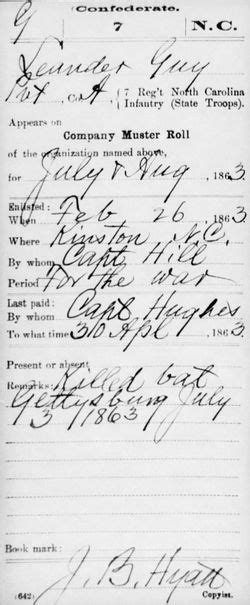 G
Confederate.
7 N.C.
Leander Guy
Pvt, Co. A, { 7 Reg't North Carolina
Infantry (State Troops).
Appears on
Company Muster Roll
of the organization named above,
for July & Aug, 1863.
Enlisted:
When Feb 26, 1863.
Where Kinston N.C.
By whom Capt Hill
Period For the war
Last paid:
By whom Capt Hughes
To what time 30 Apl, 1863.
Present or absent
Remarks: Killed bat
Gettysburg July
3 1863
Book mark:
J. B. Hyatt
(642) Copyist.